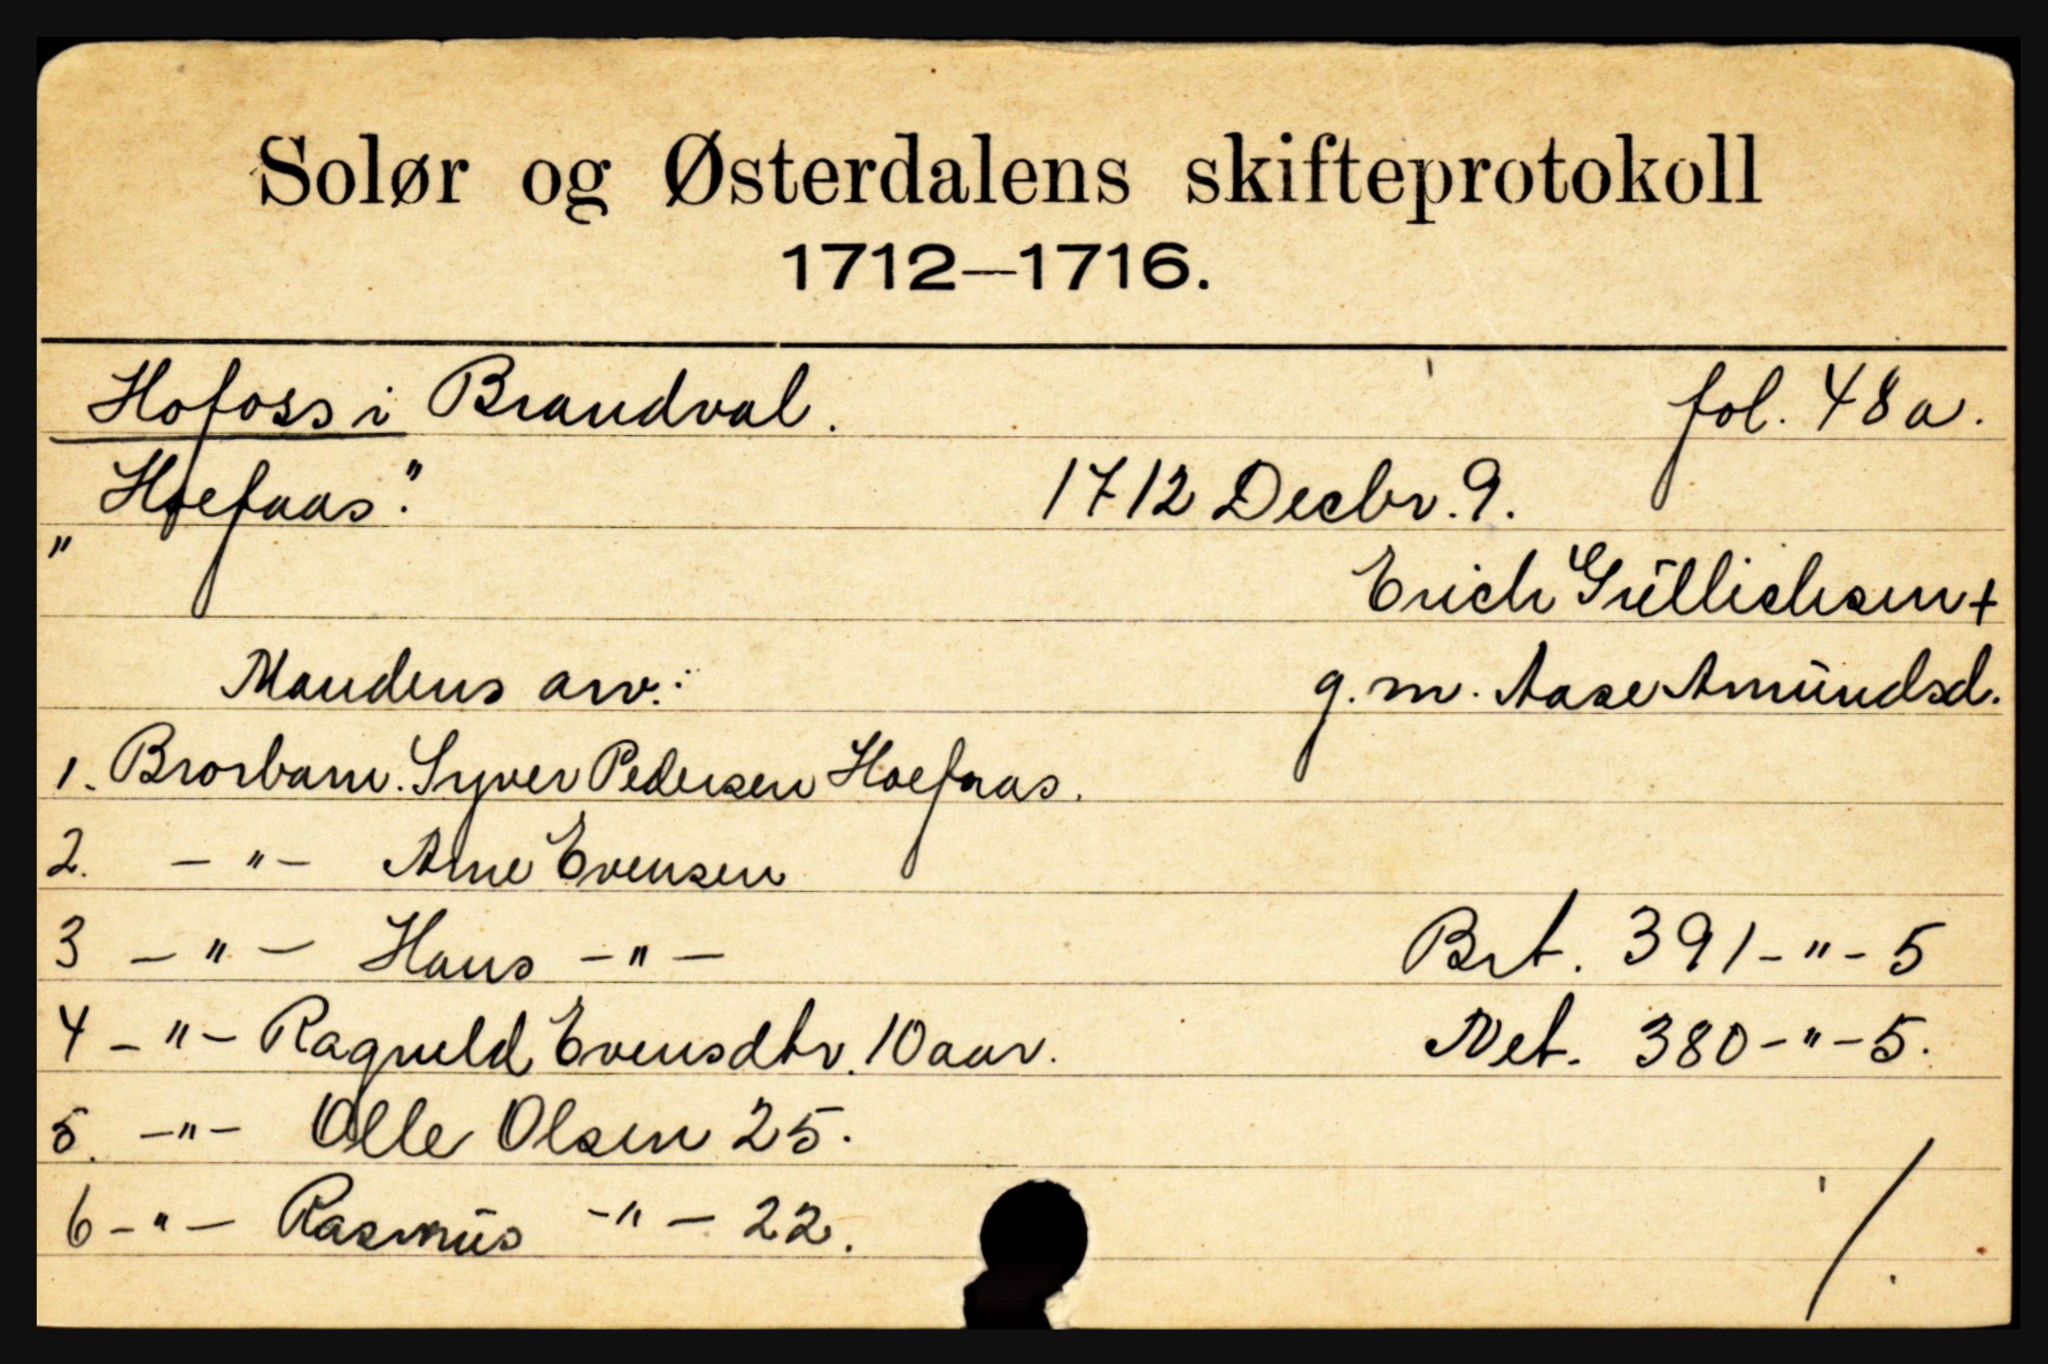 Solør og Østerdalens skifteprotokoll
1712—1716.
Hofoss i Brandval. fol. 48 a.
„Hoefaas." 1712 Decbr. 9.
Erich Güllichsen +
Mandens arv: g. m. Aase Amündsd.
1. Brorbarn. Syver Pedersen Hoefaas.
2. -"- Arne Evensen
3 -"- Hans -"-
4 -"- Ragneld Evensdtr. 10 aar.
5. -"- Olle Olsen 25.
6 -"- Rasmüs -"- 22.
Brt. 391-"-5
Net. 380-"-5.
./.